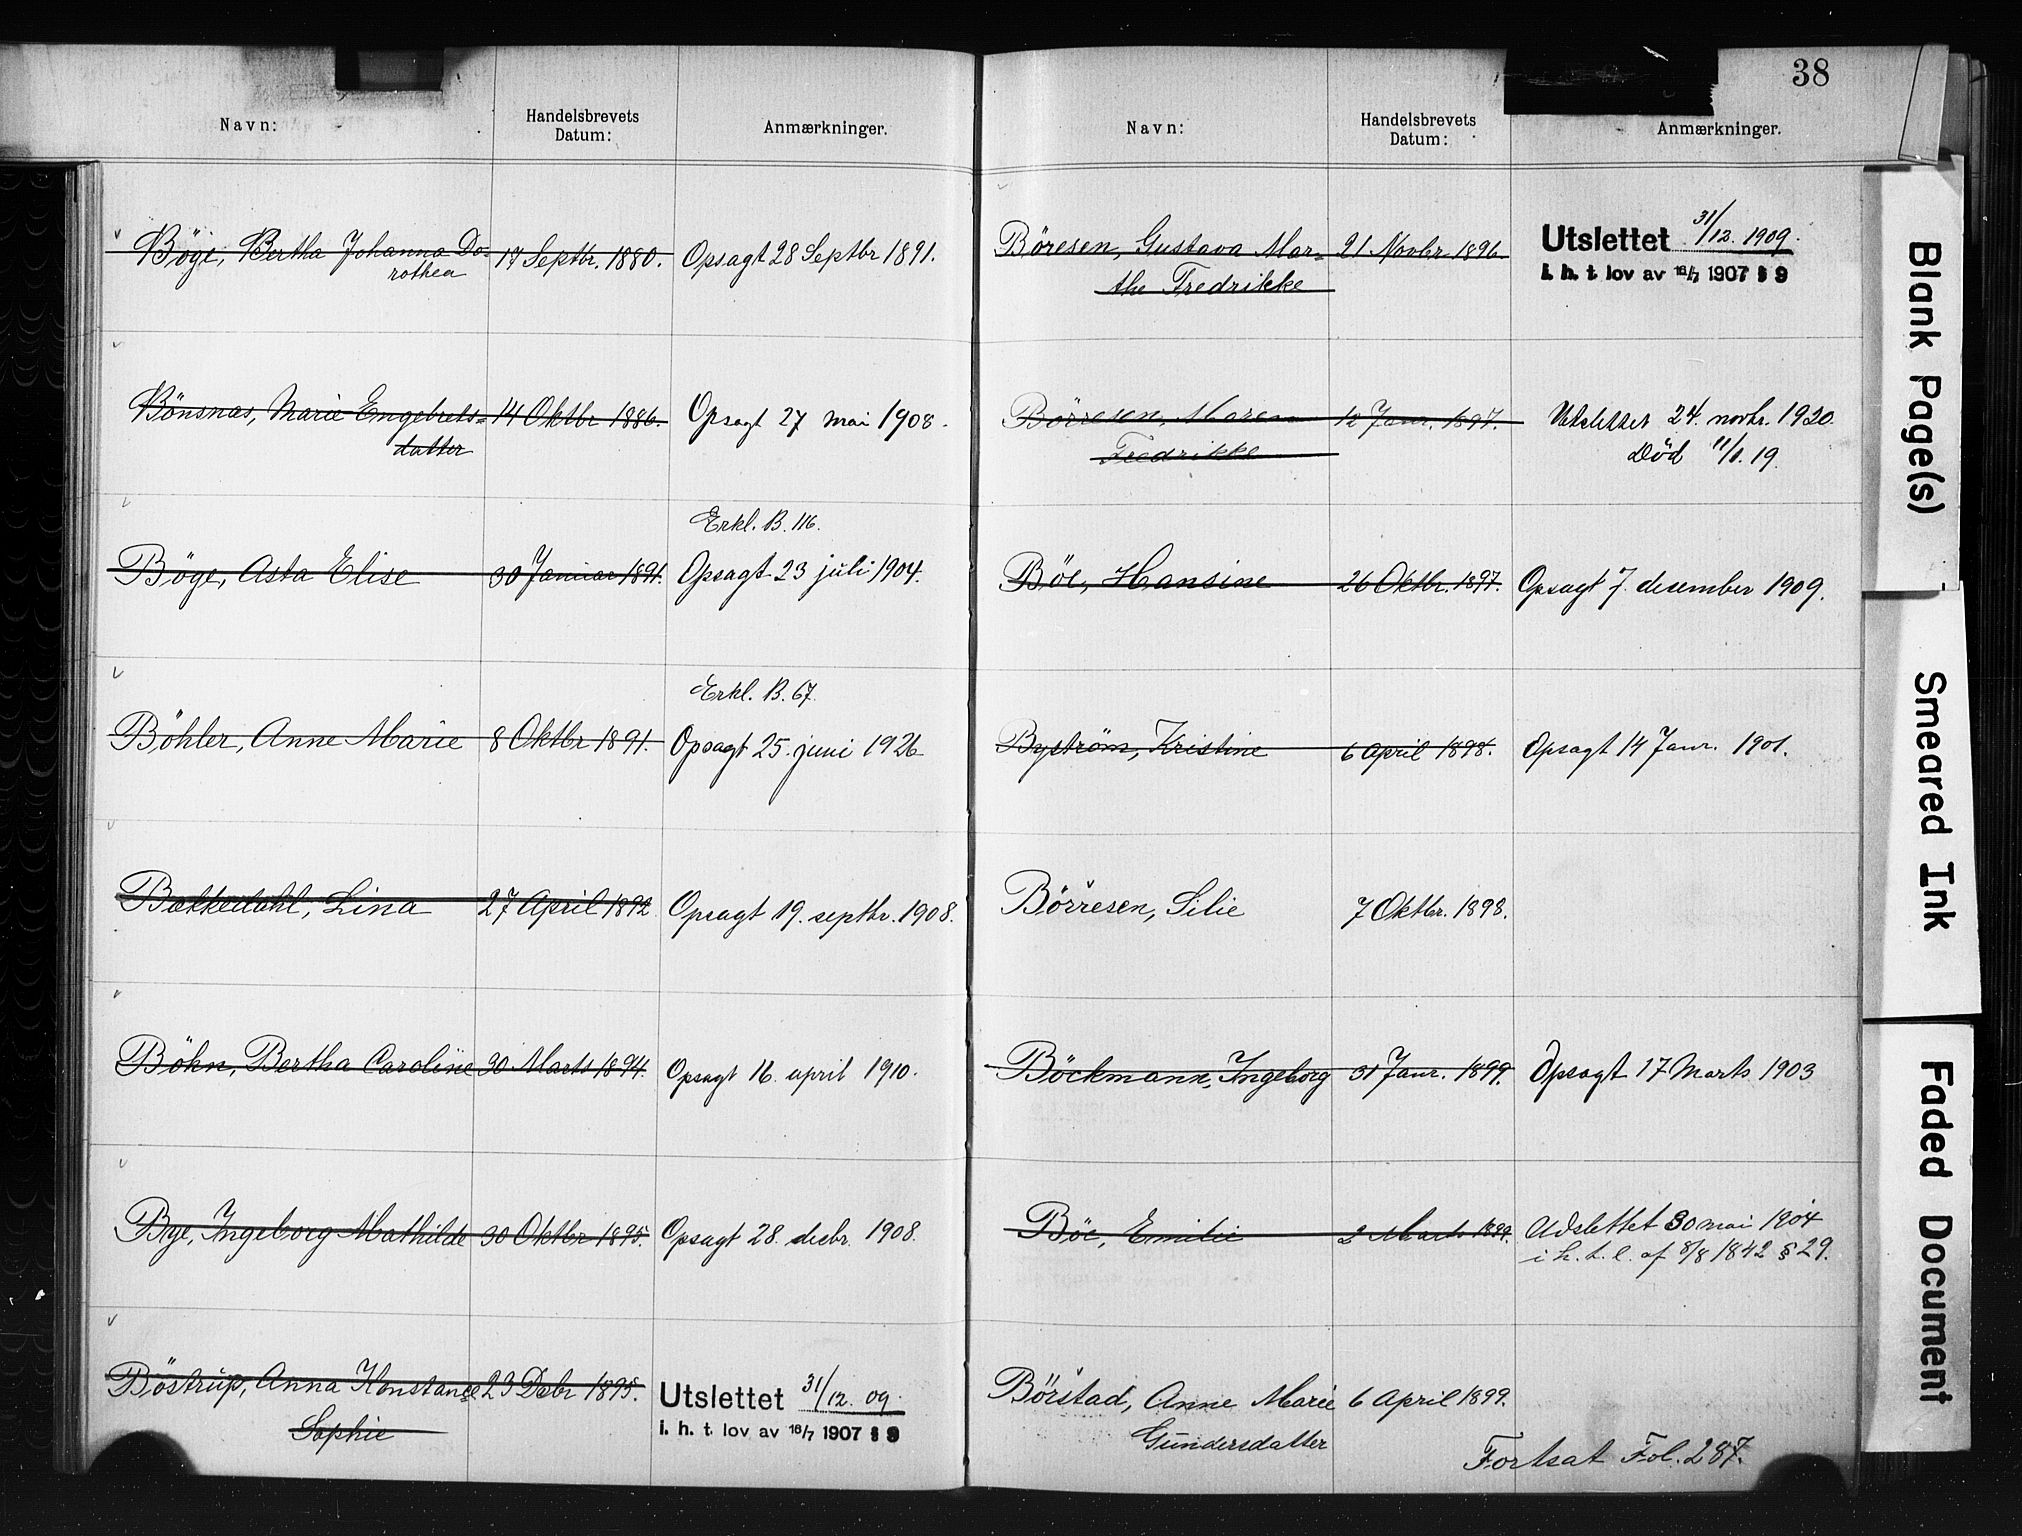 Navn:
Handelsbrevets
Datum:
Anmærkninger.
Böge, Bertha Johanna Do-
rothea
17 Septbr. 1880.
Opsagt 28 Septbr 1891.
Bönsnæs, Marie Engebrets=
datter
14 Oktbr 1886.
Opsagt 27 mai 1908.
Böge, Asta Elise
30 Januar 1891.
Erkl. B. 116.
Opsagt 23 juli 1904.
Böhler, Anne Marie
8 Oktbr 1891.
Erkl. B. 67.
Opsagt 25. juni 1926
Bækkedahl, Lina
27 April 1892
Opsagt 19. septbr. 1908.
Böhn, Bertha Caroline
30 Marts 1894.
Opsagt 16. april 1910.
Bye, Ingeborg Mathilde
30 Oktbr 1895.
Opsagt 28. desbr. 1908.
Böstrup, Anna Konstance
Sophie
23 Debr 1895.
Utslettet 31/12. 09.
i. h. t. lov av 18/7 1907 § 9
38
Navn:
Handelsbrevets
Datum:
Anmærkninger.
Böresen, Gustava Mar=
the Fredrikke
21 Novbr 1896.
Utslettet 31/12. 1909.
i. h. t. lov av 18/7 1907 § 9
Börresen, Maren
Fredrikke
12 Janr. 1897.
Utslettet 24. novbr. 1920.
Död 11/1. 19.
Böe, Hansine
26 Oktbr. 1897.
Opsagt 7. desember 1909.
Byström, Kristine
6 April 1898.
Opsagt 14 Janr. 1901.
Börresen, Silie
7 Oktbr. 1898.
Böckmann, Ingeborg
31 Janr. 1899.
Opsagt 17 Marts 1903
Böe, Emilie
2 Marts 1899.
Udslettet 30 mai 1904
i h. t. l. af 8/8 1842 § 29.
Börstad, Anne Marie
Gundersdatter
6 April 1899.
Fortsat Fol. 287.
Blank Page(s)
Smeared Ink
Faded Document